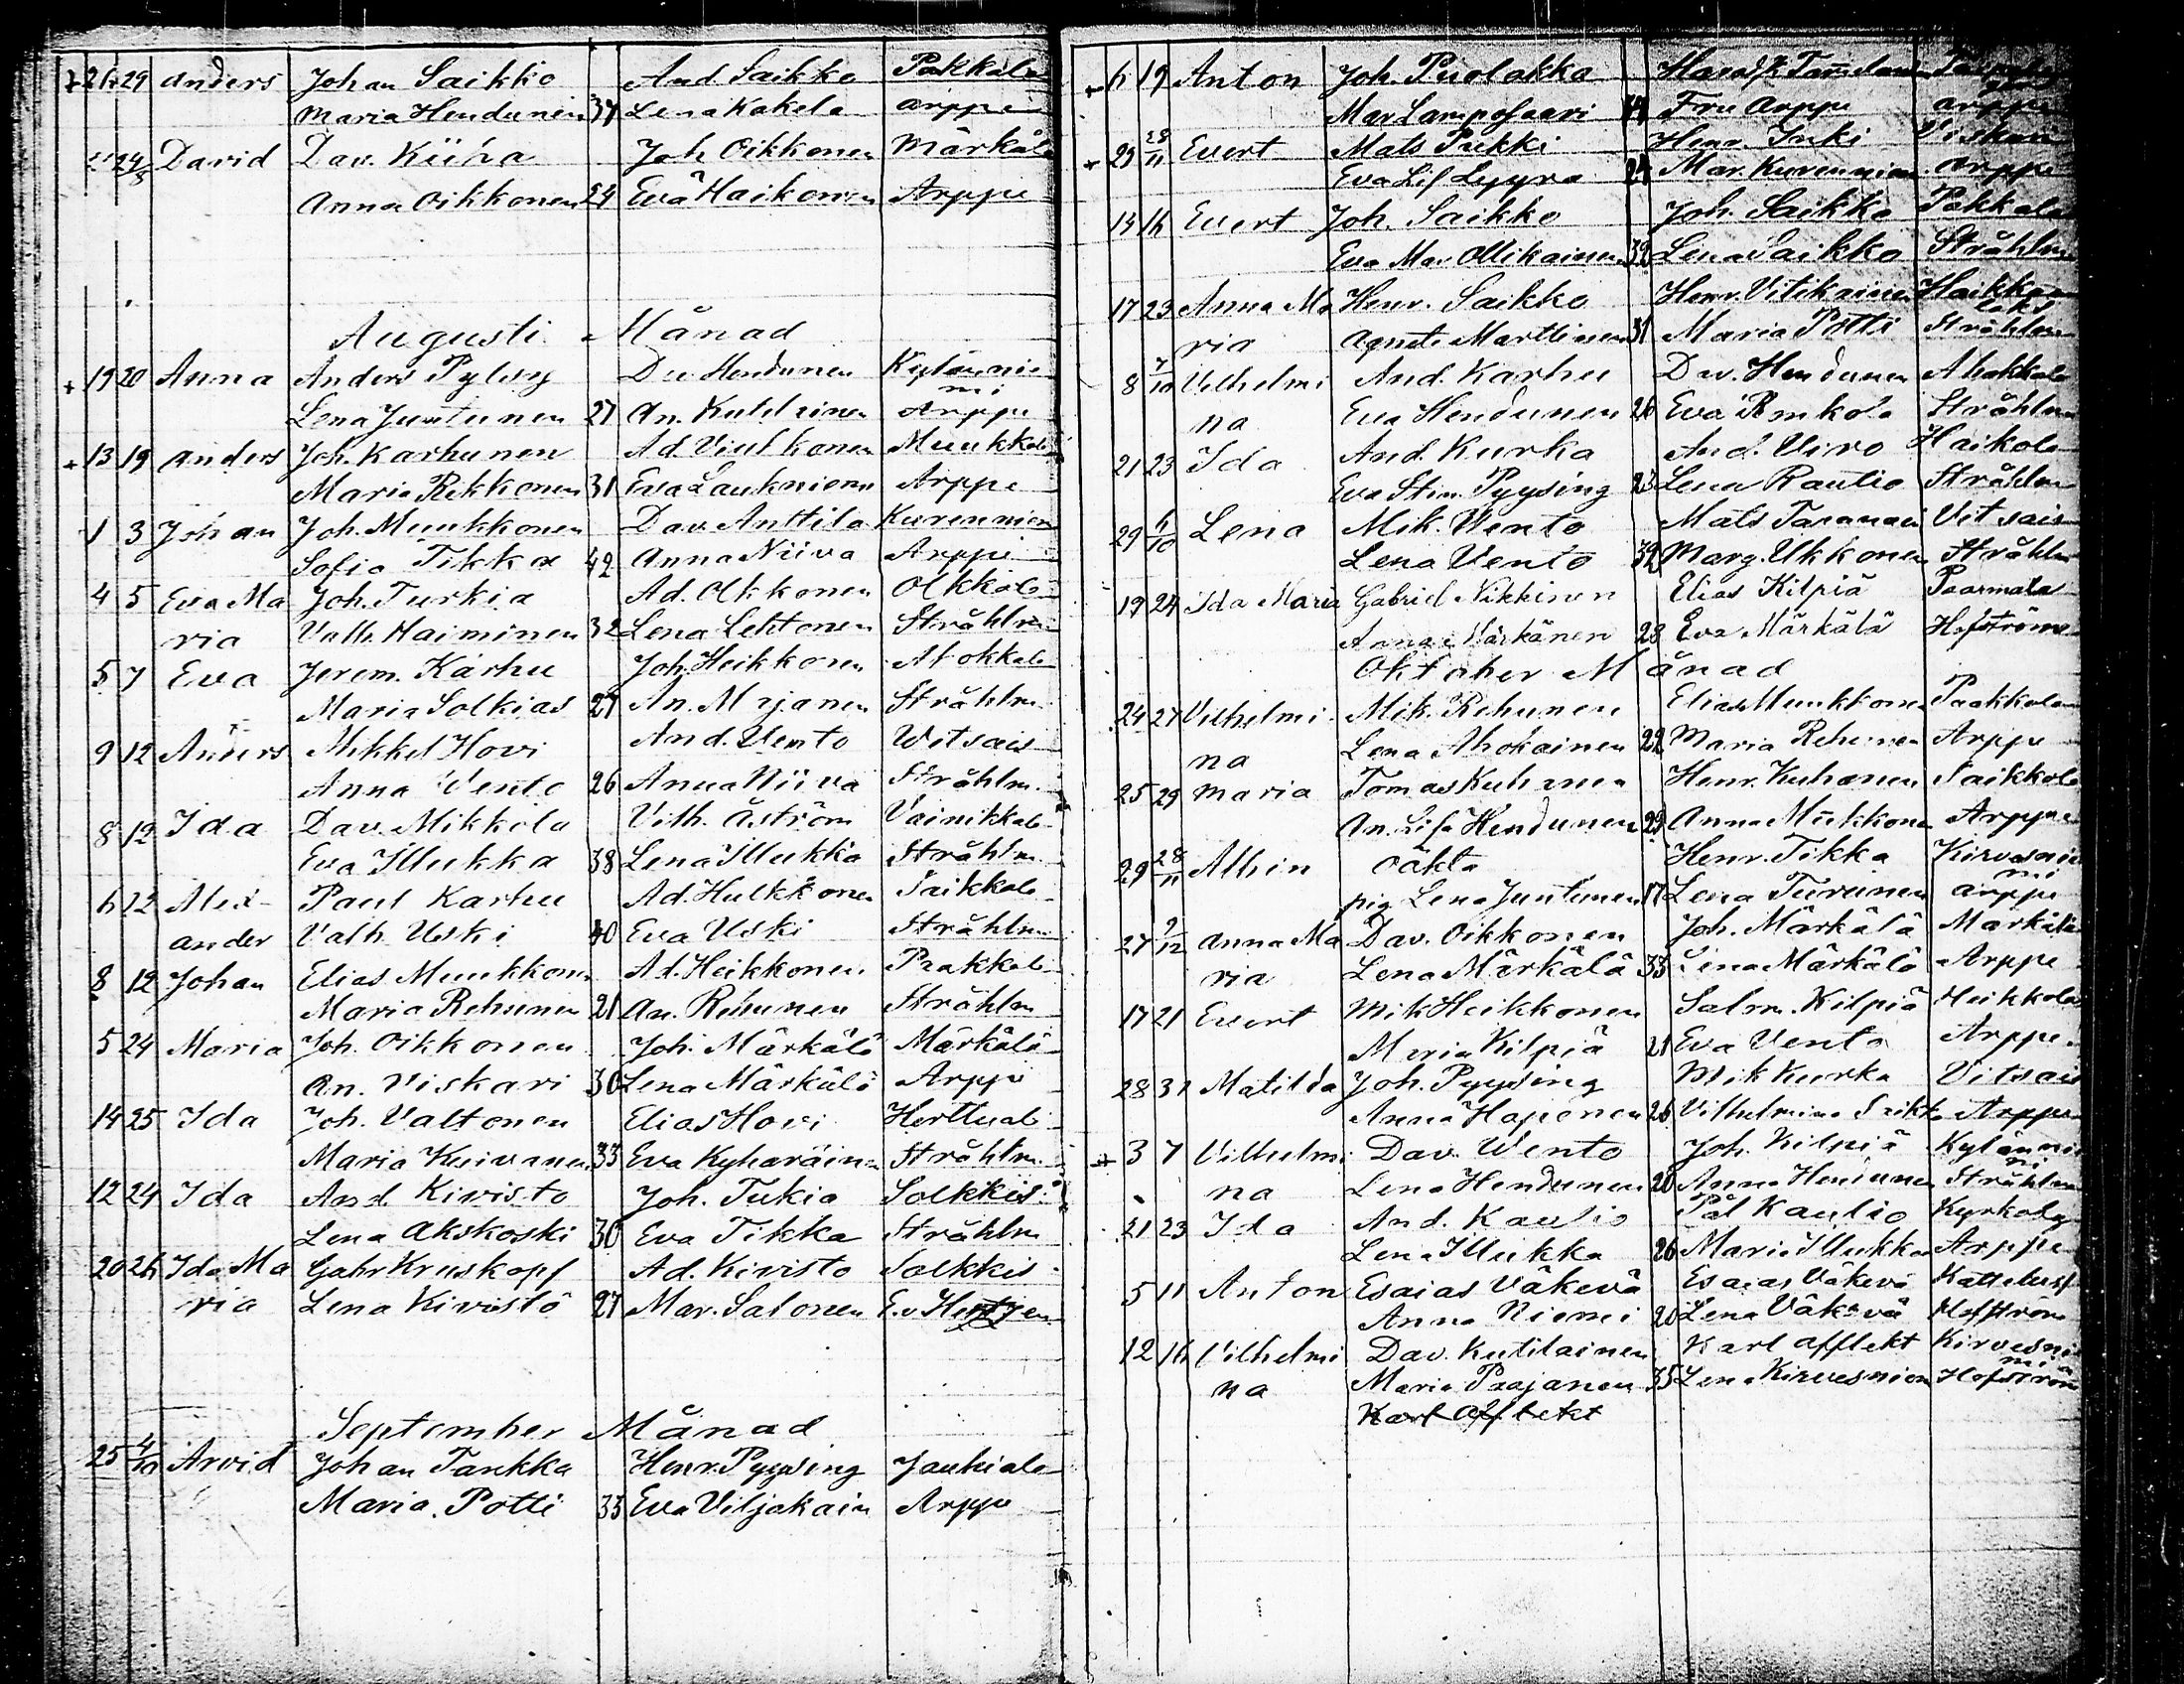 + 26 29 Anders Johan Saikko And. Saikko Pakkala
Maria Hendunen 37 Lena Kakela Arppe
24/8 David Dav. Kiiha Joh Oikkonen Märkälä
Anna Oikkonen 24 Eva Haikonen Arppe
Augusti Månad
+ 19 20 Anna Anders Pylsy Hendunen Kylännie
mi
Lena Juntunen 27 An. Kutilainen Arppe
+ 13 19 Anders Joh. Karhunen Ad. Muukkola
Maria Rikkonen 31 Eva Arppe
1 3 Johan Joh. Muukkonen Dav. Anttila
Sofia Tikka 42 Anna Niiva Arppe
4 5 Eva Ma Joh. Turkia Ad. Olkkonen Olkkola
ria Valb. Haiminen 32 Lena Lehtonen Stråhlm.
5 7 Eva Jerem. Karhu Joh. Heikkonen
Maria Solkias 27 An. Majanen Stråhlm.
9 12 Anders Mikkel Hovi And. Vento Witsais
Anna Vento 26 Anna Niiva Stråhlm.
8 12 Ida Dav. Mikkola Vilh. Åström Vainikkala
Eva Illukka 38 Lena Illukka Stråhlm
6 12 Alex- Paul Karhu Ad. Hulkkonen Saikkola
ander Valb. Uski 40 Eva Uski Stråhlm.
8 12 Johan Elias Muukkonen Ad. Heikkonen Paakkola
Maria Rehunen 21 An. Rehunen Stråhlm
5 24 Maria Joh. Oikkonen Joh. Märkälä Märkälä
An. Viskari 30 Lena Märkälä Arppe
14 25 Ida Joh. Valtonen Elias Hovi Herttuala
Maria Kuivanen 33 Eva Kyharäinen Stråhlm.
12 24 Ida And. Kivisto Joh. Tukia Solkkis
Lena Akskoski 30 Eva Tikka Stråhlm
20 26 Ida Ma Gabr Kruskopf Ad. Kivisto Solkkis
ria Lena Kivistö 27 Mar. Salonen
September Månad
25 4/10 Arvid Johan Tarkka Henr. Pyysing Jauhiala
Maria Potti 33 Eva Viljakain Arppe
+ 6 19 Anton Joh. Puolakka
Mar Lamposaari Fru Arppe Arppe
+ 23 28/11 Evert Mats Pukki Henr. Inki Viskari
Eva Lis Lyyra 24 Mar. Arppe
14 16 Evert Joh. Saikko Joh. Saikko Pakkala
Eva Mar Ollikainen 32 Lena Saikko Stråhlm
17 23 Anna Ma Henr. Saikko Henr. Vitikainen Haikkan
laks
ria Agneta Marttinen 31 Maria Potti Stråhlm
8 7/10 Vilhelmi And. Karhu Dav. Hendunen
na Eva Hendunen 26 Eva Stråhlm
21 23 Ida And. Kurka And. Viro Haikola
Eva Stin. Pyysing 23 Lena Rautio Stråhlm
29 6/10 Lena Mik. Vento Mats Vitsais
Lena Vento 32 Marg. Ukkonen Stråhlm
19 24 Ida Maria Gabriel Nikkinen Elias Kilpiä Paarmala
Anna Märkänen 28 Eva Märkälä Hofström
Oktober Månad
24 27 Vilhelmi Mik. Rehunen Elias Muukkonen Paakkola
na Lena Ahokainen 22 Maria Rehunen Arppe
25 29 Maria Tomas Kuhanen Henr. Kuhanen Saikkola
An. Lisa Hendunen 23 Anna Mukkonen Arppe
29 28/11 Albin Oäkta Henr. Tikka Kirvesnie
mi
pig Lena Juntunen 17 Lena Tureinen Arppe
27 9/12 Anna Ma Dav. Oikkonen Joh. Märkälä Märkälä
ria Lena Märkälä 33 Lena Märkälä Arppe
17 21 Evert Mik Heikkonen Salm. Kilpiä Heikkola
Maria Kilpiä 21 Eva Vento Arppe
28 31 Matilda Joh. Pyysing Mik Kurka Vitsais
Anna Haponen 26 Vilhelmina Saikko Arppe
+ 3 7 Vilhelmi Dav. Wento Joh. Kilpiä Kylännie
mi
na Lena Hendunen 20 Anna Hendunen Stråhlm
21 23 Ida And. Kaulio Pål Kaulio Kyrkoby
Lena Illukka 26 Maria Illukka Arppe
5 11 Anton Esaias Väkevä Esaias Väkevä
Anna Niemi 20 Lena Väkevä Hofström
12 16 Vilhelmi Dav. Kutilainen Karl Afflekt Kirvesnie
mi
na Maria Paajanen 35 Lena Kirvesniem Hofström
Karl Afflekt